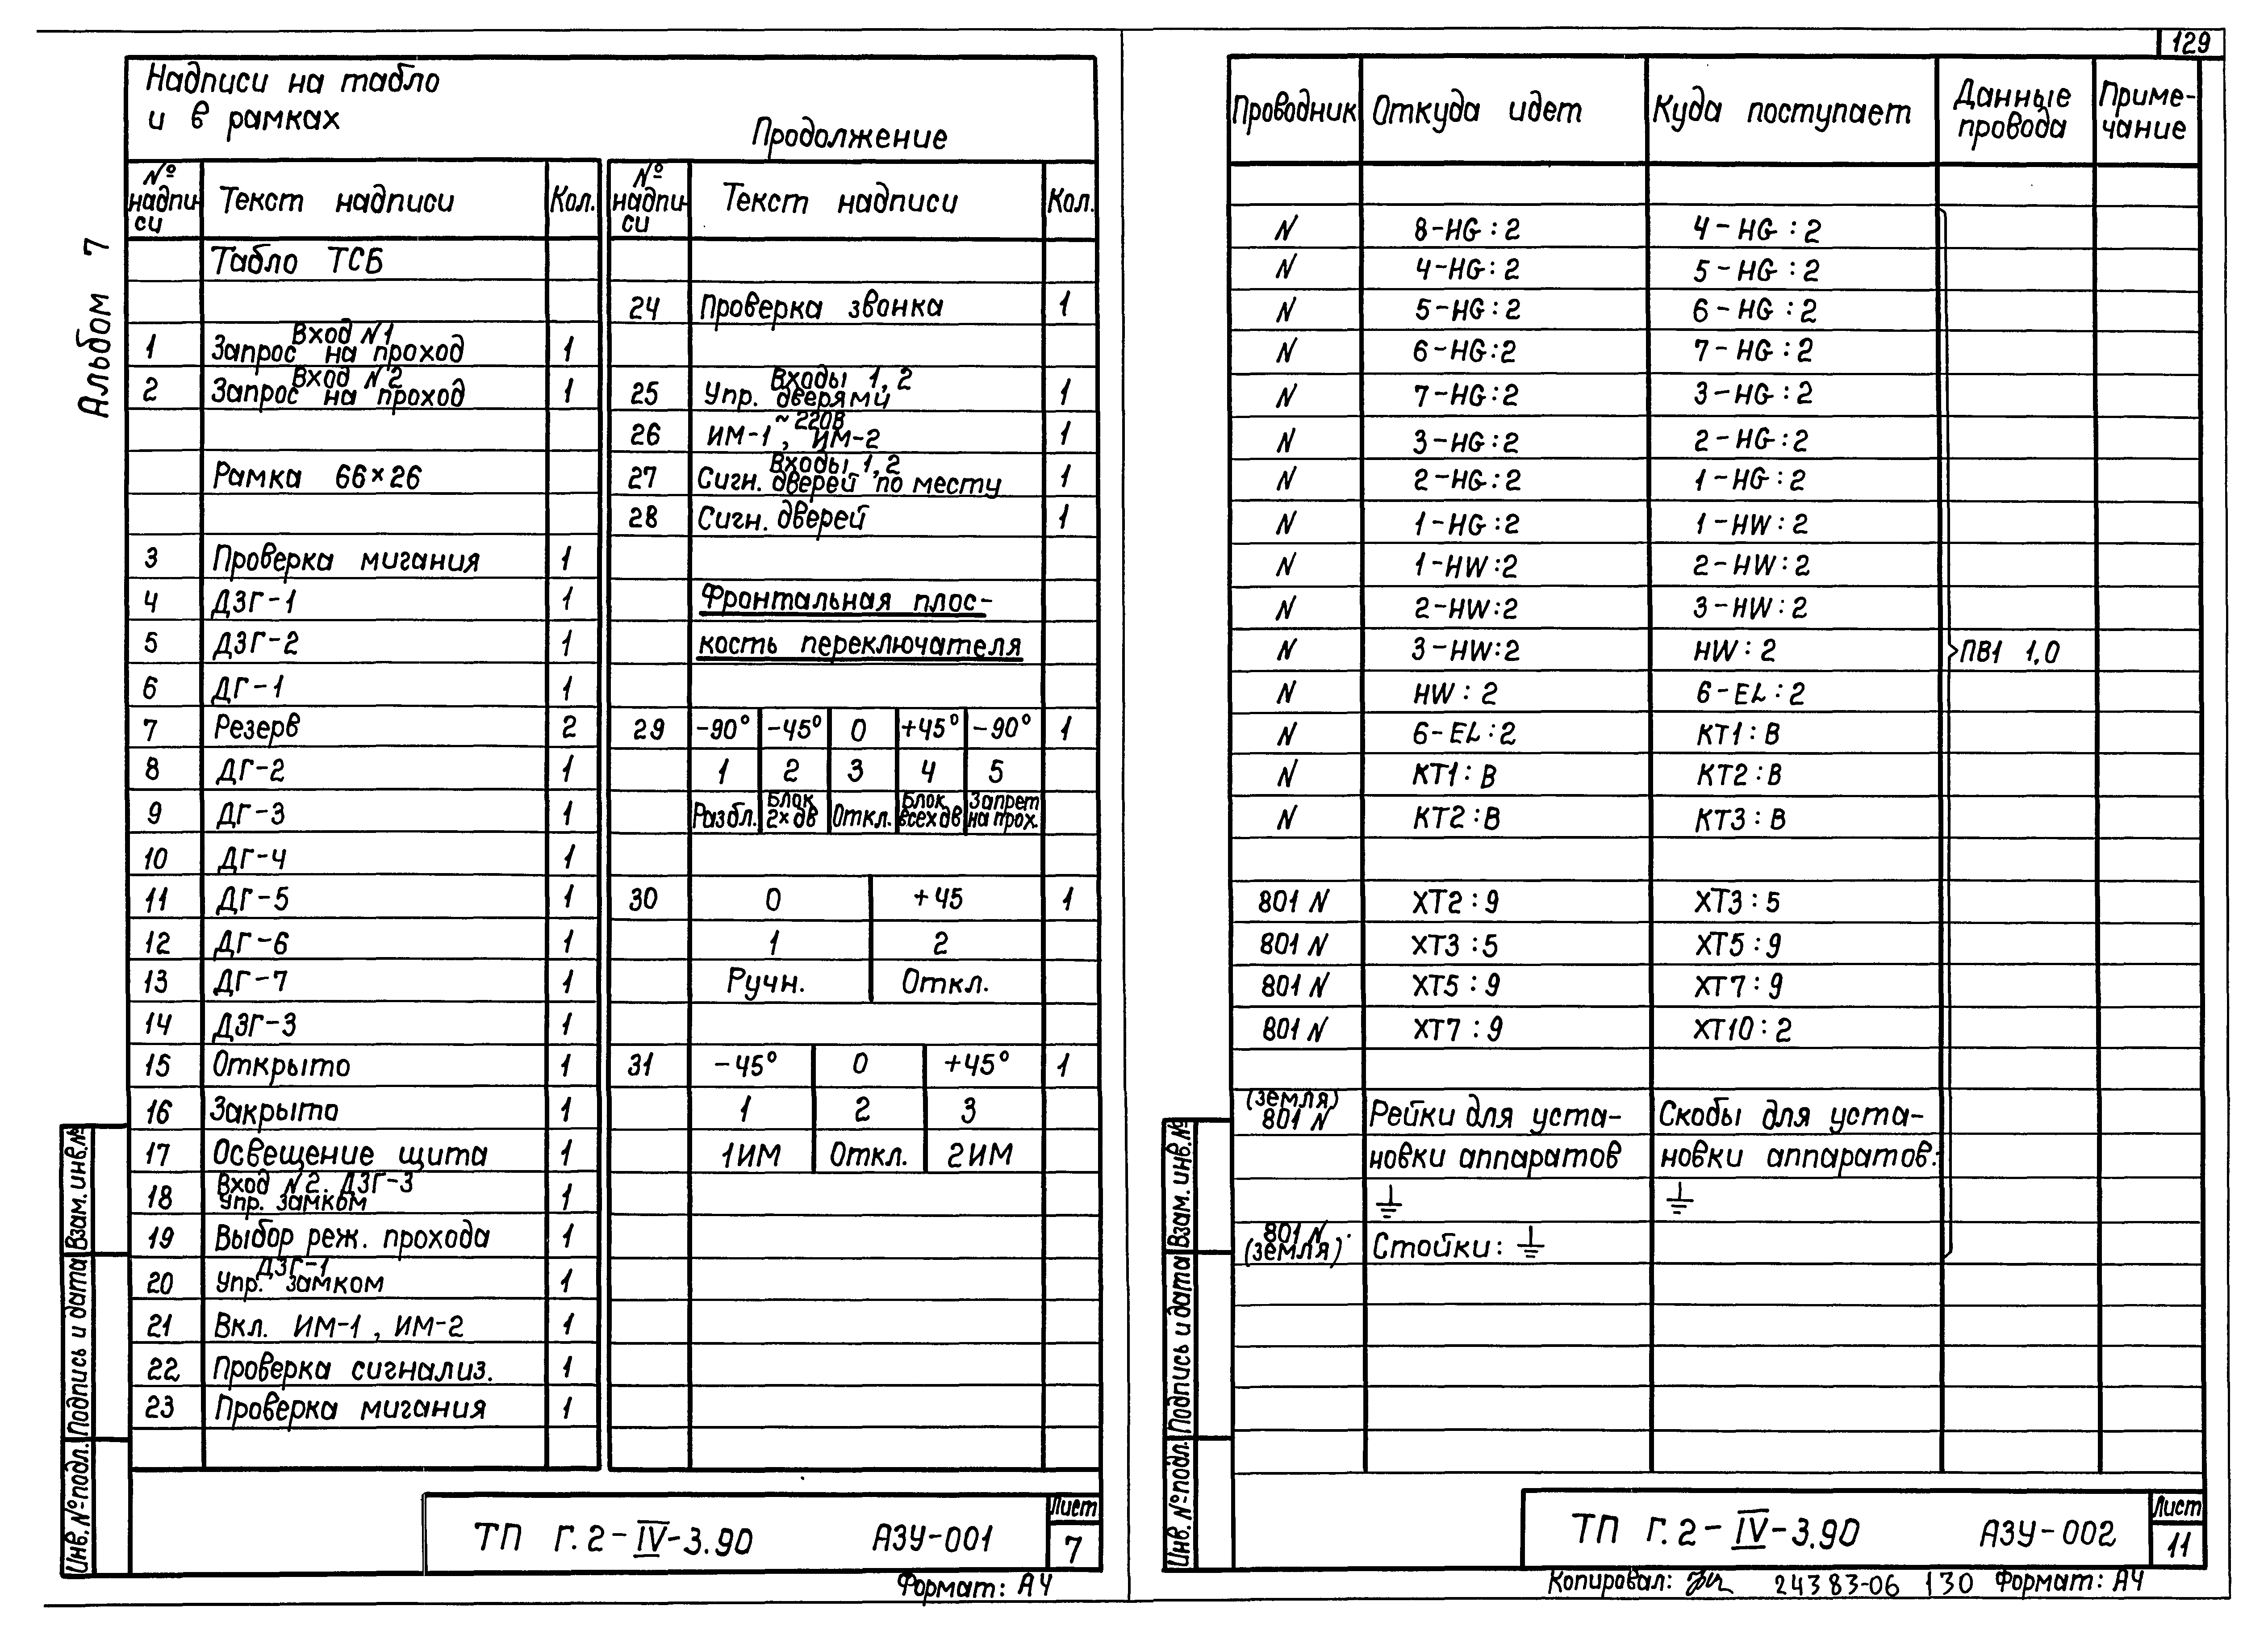 129
Альбом 7
Надписи на табло
и в рамках
Продолжение
№ надписи Текст надписи Кол.
Табло ТСБ
1 Вход N1 Запрос на проход 1
2 Вход N2 Запрос на проход 1
Рамка 66×26
3 Проверка мигания 1
4 ДЗГ-1 1
5 ДЗГ-2 1
6 ДГ-1 1
7 Резерв 2
8 ДГ-2 1
9 ДГ-3 1
10 ДГ-4 1
11 ДГ-5 1
12 ДГ-6 1
13 ДГ-7 1
14 ДЗГ-3 1
15 Открыто 1
16 Закрыто 1
17 Освещение щита 1
18 Вход N2. ДЗГ-3 Упр. замком 1
19 Выбор реж. прохода 1
20 ДЗГ-1 Упр. замком 1
21 Вкл. ИМ-1, ИМ-2 1
22 Проверка сигнализ. 1
23 Проверка мигания 1
№ надписи Текст надписи Кол.
24 Проверка звонка 1
25 Входы 1, 2 Упр. дверями 1
26 ~220В ИМ-1, ИМ-2 1
27 Входы 1,2 Сигн. дверей по месту 1
28 Сигн. дверей 1
Фронтальная плос-
кость переключателя
29 -90° -45° 0 +45° -90° 1
1 2 3 4 5
Разбл. Блок 2х дв Откл. Блок всех дв Запрет на прох.
30 0 +45 1
1 2
Ручн. Откл.
31 -45° 0 +45° 1
1 2 3
1ИМ Откл. 2ИМ
Инв. № подл. Подпись и дата Взам. инв. №
ТП Г.2-IV-3.90 АЗУ-001 Лист 7
Формат: А4
Проводник Откуда идет Куда поступает Данные провода Приме-чание
N 8-HG:2 4-HG:2
N 4-HG:2 5-HG:2
N 5-HG:2 6-HG:2
N 6-HG:2 7-HG:2
N 7-HG:2 3-HG:2
N 3-HG:2 2-HG:2
N 2-HG:2 1-HG:2
N 1-HG:2 1-HW:2
N 1-HW:2 2-HW:2
N 2-HW:2 3-HW:2
N 3-HW:2 HW:2 ПВ1 1,0
N HW:2 6-EL:2
N 6-EL:2 КТ1:В
N КТ1:В КТ2:В
N КТ2:В КТ3:В
801 N ХТ2:9 ХТ3:5
801 N ХТ3:5 ХТ5:9
801 N ХТ5:9 ХТ7:9
801 N ХТ7:9 ХТ10:2
(земля) 801 N Рейки для уста- Скобы для уста-
новки аппаратов новки аппаратов:
⏚ ⏚
801 N (земля) Стойки: ⏚
Инв. № подл. Подпись и дата Взам. инв. №
ТП Г.2-IV-3.90 АЗУ-002 Лист 11
Копировал: 24383-06 130 Формат: А4